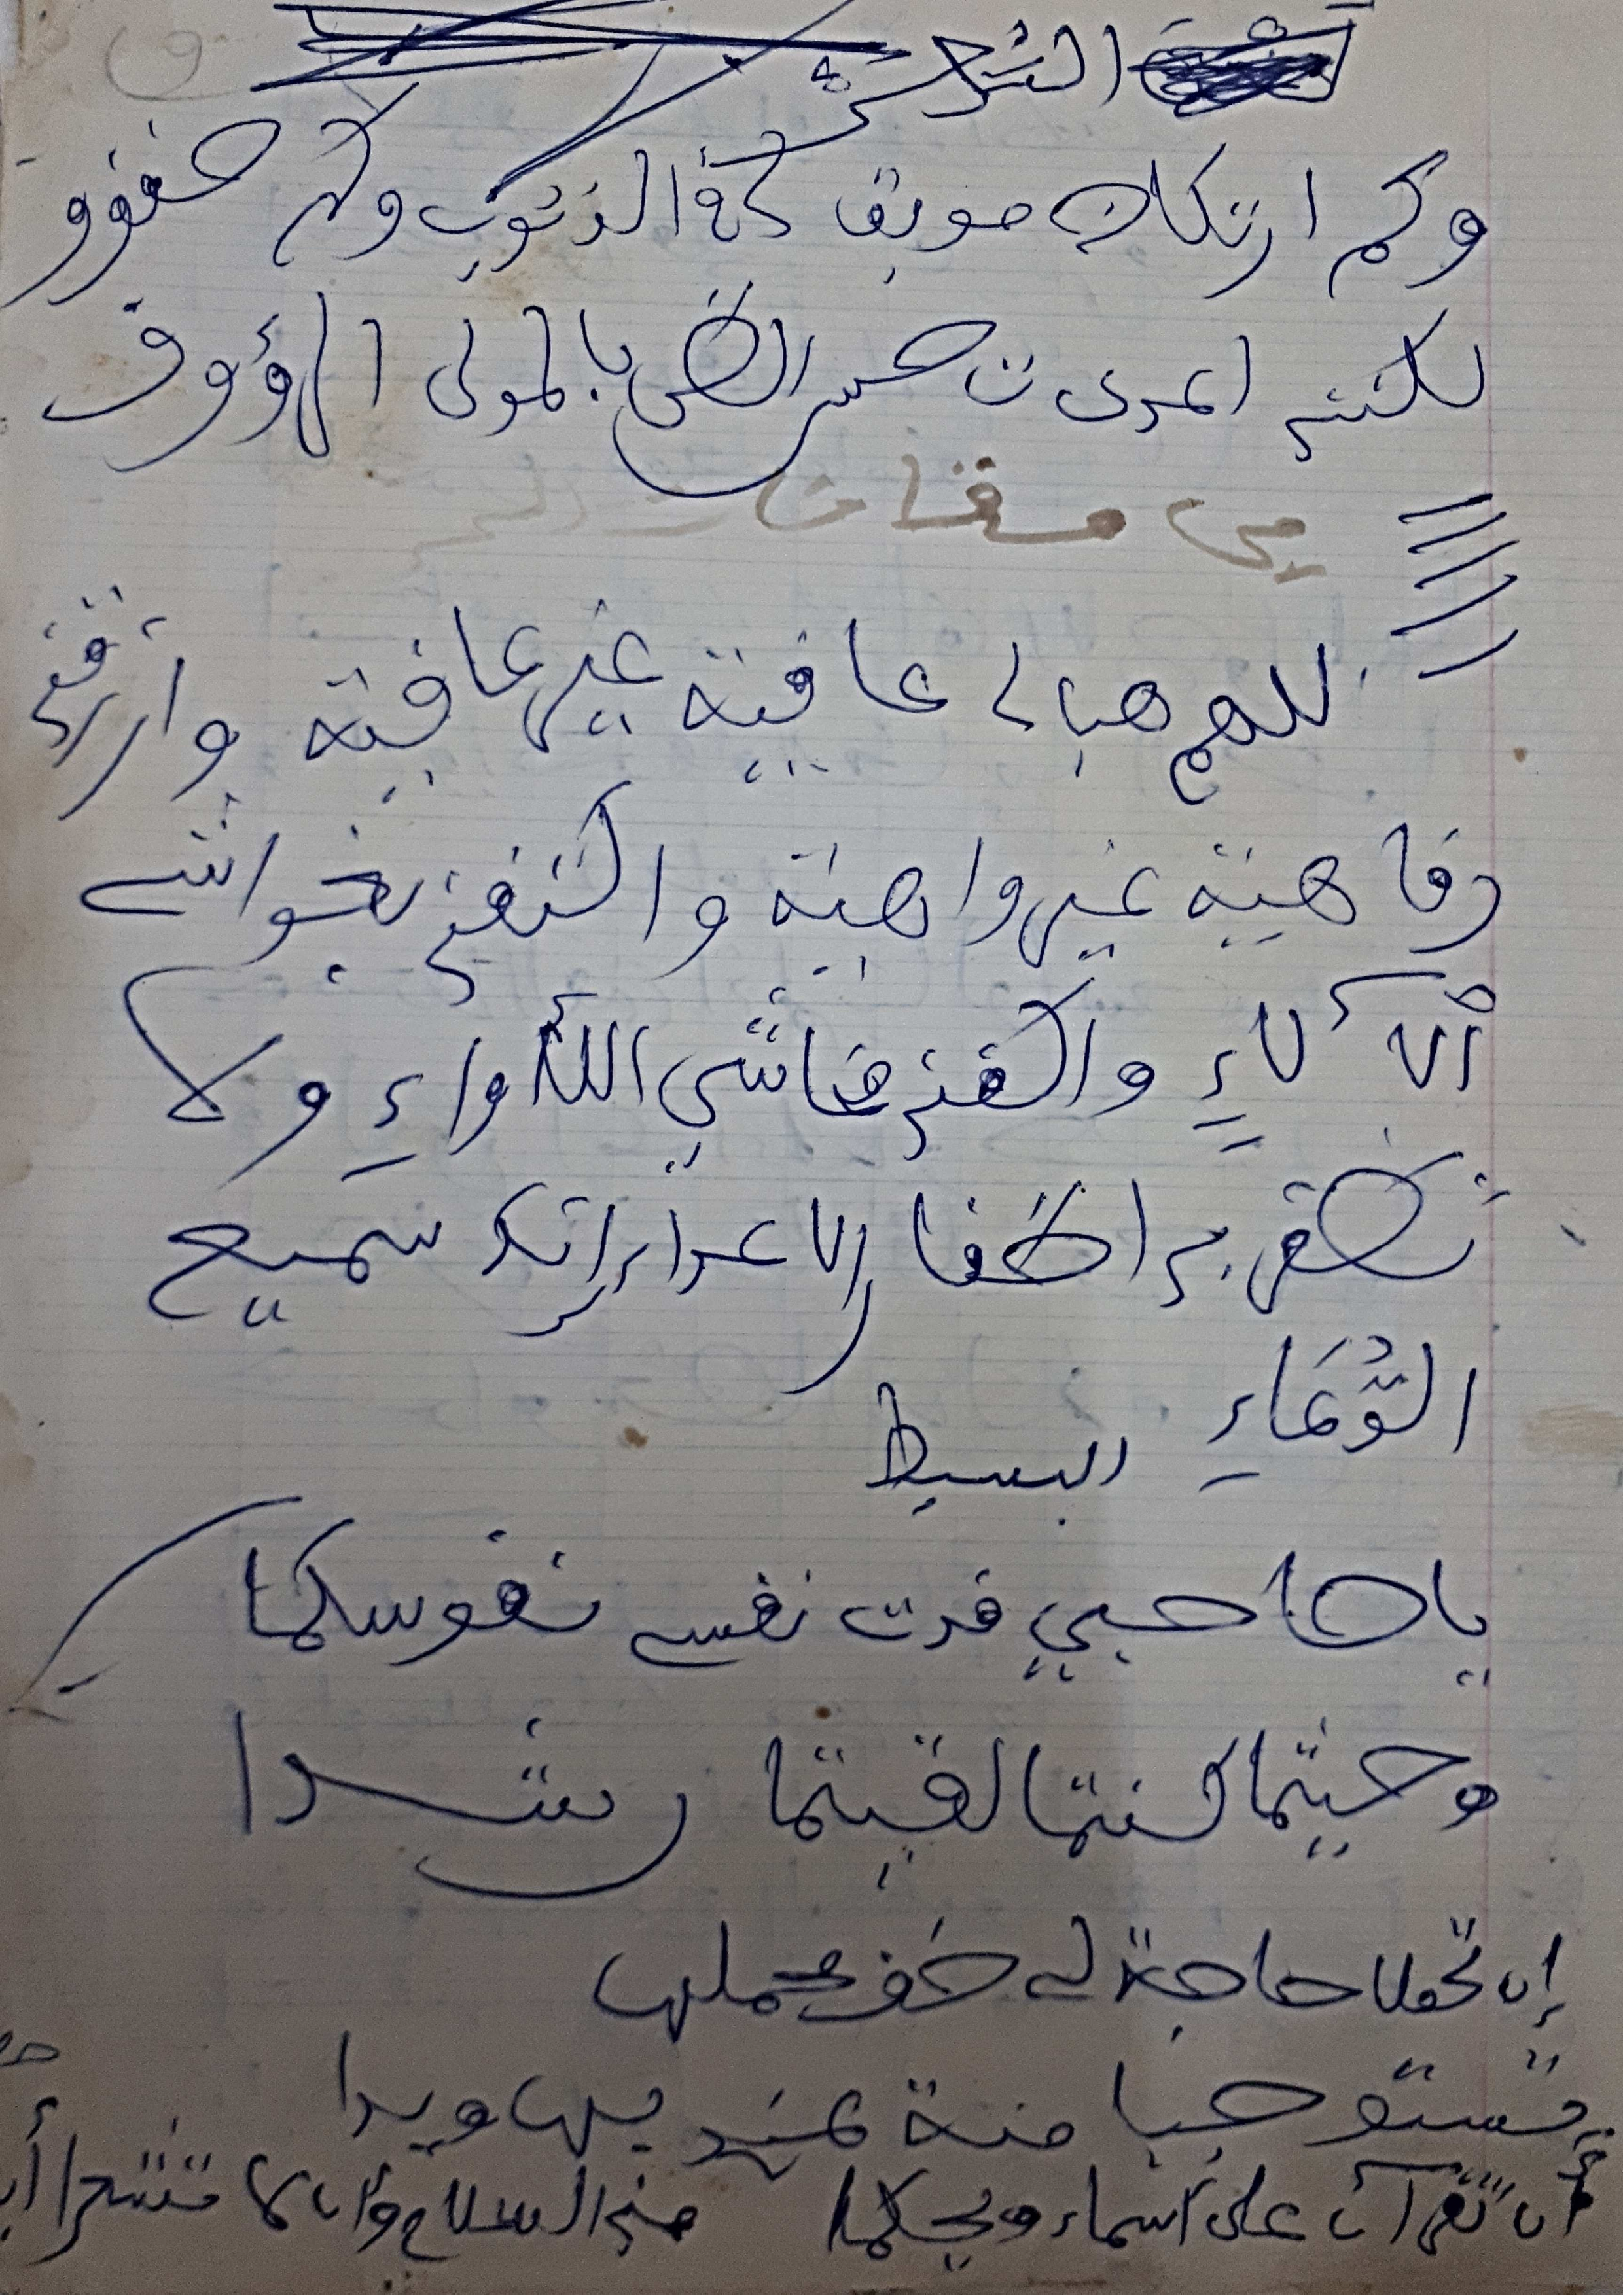 وكم ارتكاب موبق كم الذنوب وكم حقوق
لكننى اعددت حسن الظن بالمولى الرؤوف
مقامات
للهم هب لي عافية غير عافية وارزقني
رفاهية غير واهية واكنفني بغواشي
ألآلاء واكفني غاشي اللأواء ولا
تظفر بي اظفار الاعداء إنك سميع
الدُّعَاءِ
البسيط
يا صاحبي فدت نفسي نفوسكما
وحيثما كنتما لقيتما رشدا
إن تحملا حاجة لي خف محملها
تستوجبا منة عندي بها ويدا
أن تقرآن على أسماء ويحكما مني السلام وأن لا تشعرا أ